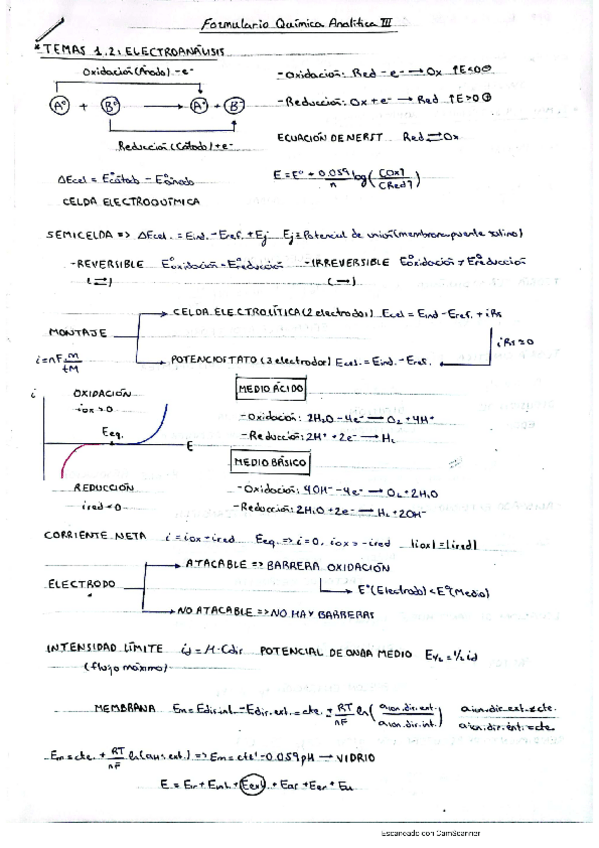 Formulario Química Analítica III
* TEMAS 1.2: ELECTROANÁLISIS
Oxidación (Ánodo) -e⁻
- Oxidación: Red - e⁻ → Ox ↑E<0 ⊖
Aº + Bº → A⁺ + B⁻
- Reducción: Ox + e⁻ → Red ↑E>0 ⊕
Reducción (Cátodo) +e⁻
ECUACIÓN DE NERST Red ⇌ Ox
ΔEcel = Eºcátod - Eºánodo
E = Eº + 0.059/n log([Ox]/[Red])
CELDA ELECTROQUÍMICA
SEMICELDA => ΔEcel. = Eind. - Eref. + Ej Ej = Potencial de unión (membrana, puente salino)
- REVERSIBLE Eºoxidación = Ereducción - IRREVERSIBLE Eºoxidación ≠ Eºreducción
(⇌) (→)
CELDA ELECTROLÍTICA (2 electrodos) Ecel = Eind - Eref. + iRs
MONTAJE
iRs = 0
i = nF m/tM
POTENCIOSTATO (3 electrodos) Ecel. = Eind. - Eref.
i
OXIDACIÓN
iox > 0
MEDIO ÁCIDO
- Oxidación: 2H₂O - 4e⁻ → O₂ + 4H⁺
Eeq.
- Reducción: 2H⁺ + 2e⁻ → H₂
E
MEDIO BÁSICO
REDUCCIÓN
- Oxidación: 4OH⁻ - 4e⁻ → O₂ + 2H₂O
ired < 0
- Reducción: 2H₂O + 2e⁻ → H₂ + 2OH⁻
CORRIENTE NETA i = iox + ired Eeq. => i = 0, iox = -ired |iox| = |ired|
ATACABLE => BARRERA OXIDACIÓN
ELECTRODO
Eº(Electrodo) < Eº(Medio)
NO ATACABLE => NO HAY BARRERAS
INTENSIDAD LÍMITE id = H·Cdir POTENCIAL DE ONDA MEDIO E½ = ½ id
(flujo máximo)
MEMBRANA Em = Edir.int. - Edir.ext. = cte. + RT/nF ln(aion.dir.ext./aion.dir.int.) aion.dir.ext ≠ cte.
aion.dir.int. = cte
Em = cte. + RT/nF ln(aH⁺.ext.) => Em = cte' - 0.059 pH → VIDRIO
Escaneado con CamScanner